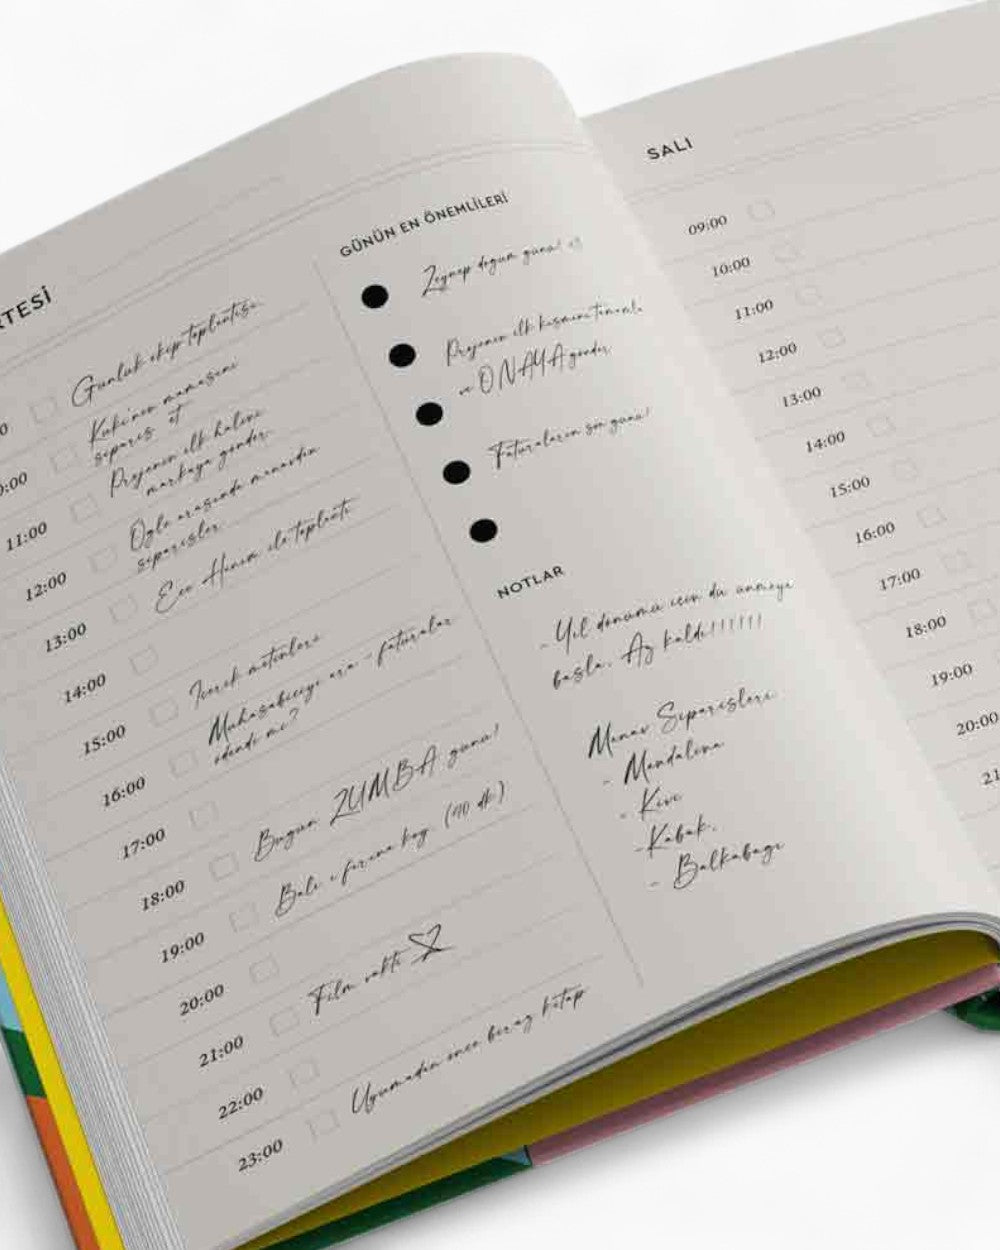 RTESİ
Günlük ekip toplantısı
Kuki'nin mamasını
sipariş et
Projenin ilk halini
markaya gönder.
Öğle arasında manavdan
siparişler
11:00
12:00
Ece Hanım ile toplantı
13:00
14:00
İçerik metinleri
15:00
Muhasebeciyi ara - faturalar
ödendi mi?
16:00
17:00
Bugün ZUMBA günü!
18:00
Balı fırına koy (40 dk)
19:00
20:00
Film vakti
21:00
22:00
Uyumadan önce biraz kitap
23:00
GÜNÜN EN ÖNEMLİLERİ
Zeynep doğum günü!
Projenin ilk kısmını tamamla
ve ONAYA gönder
Faturaların son günü!
NOTLAR
- Yıl dönümü için düşünmeye
başla. Az kaldı!!!!!!
Manav Siparişleri
- Mandalina
- Kivi
- Kabak.
- Balkabağı
SALI
09:00
10:00
11:00
12:00
13:00
14:00
15:00
16:00
17:00
18:00
19:00
20:00
21